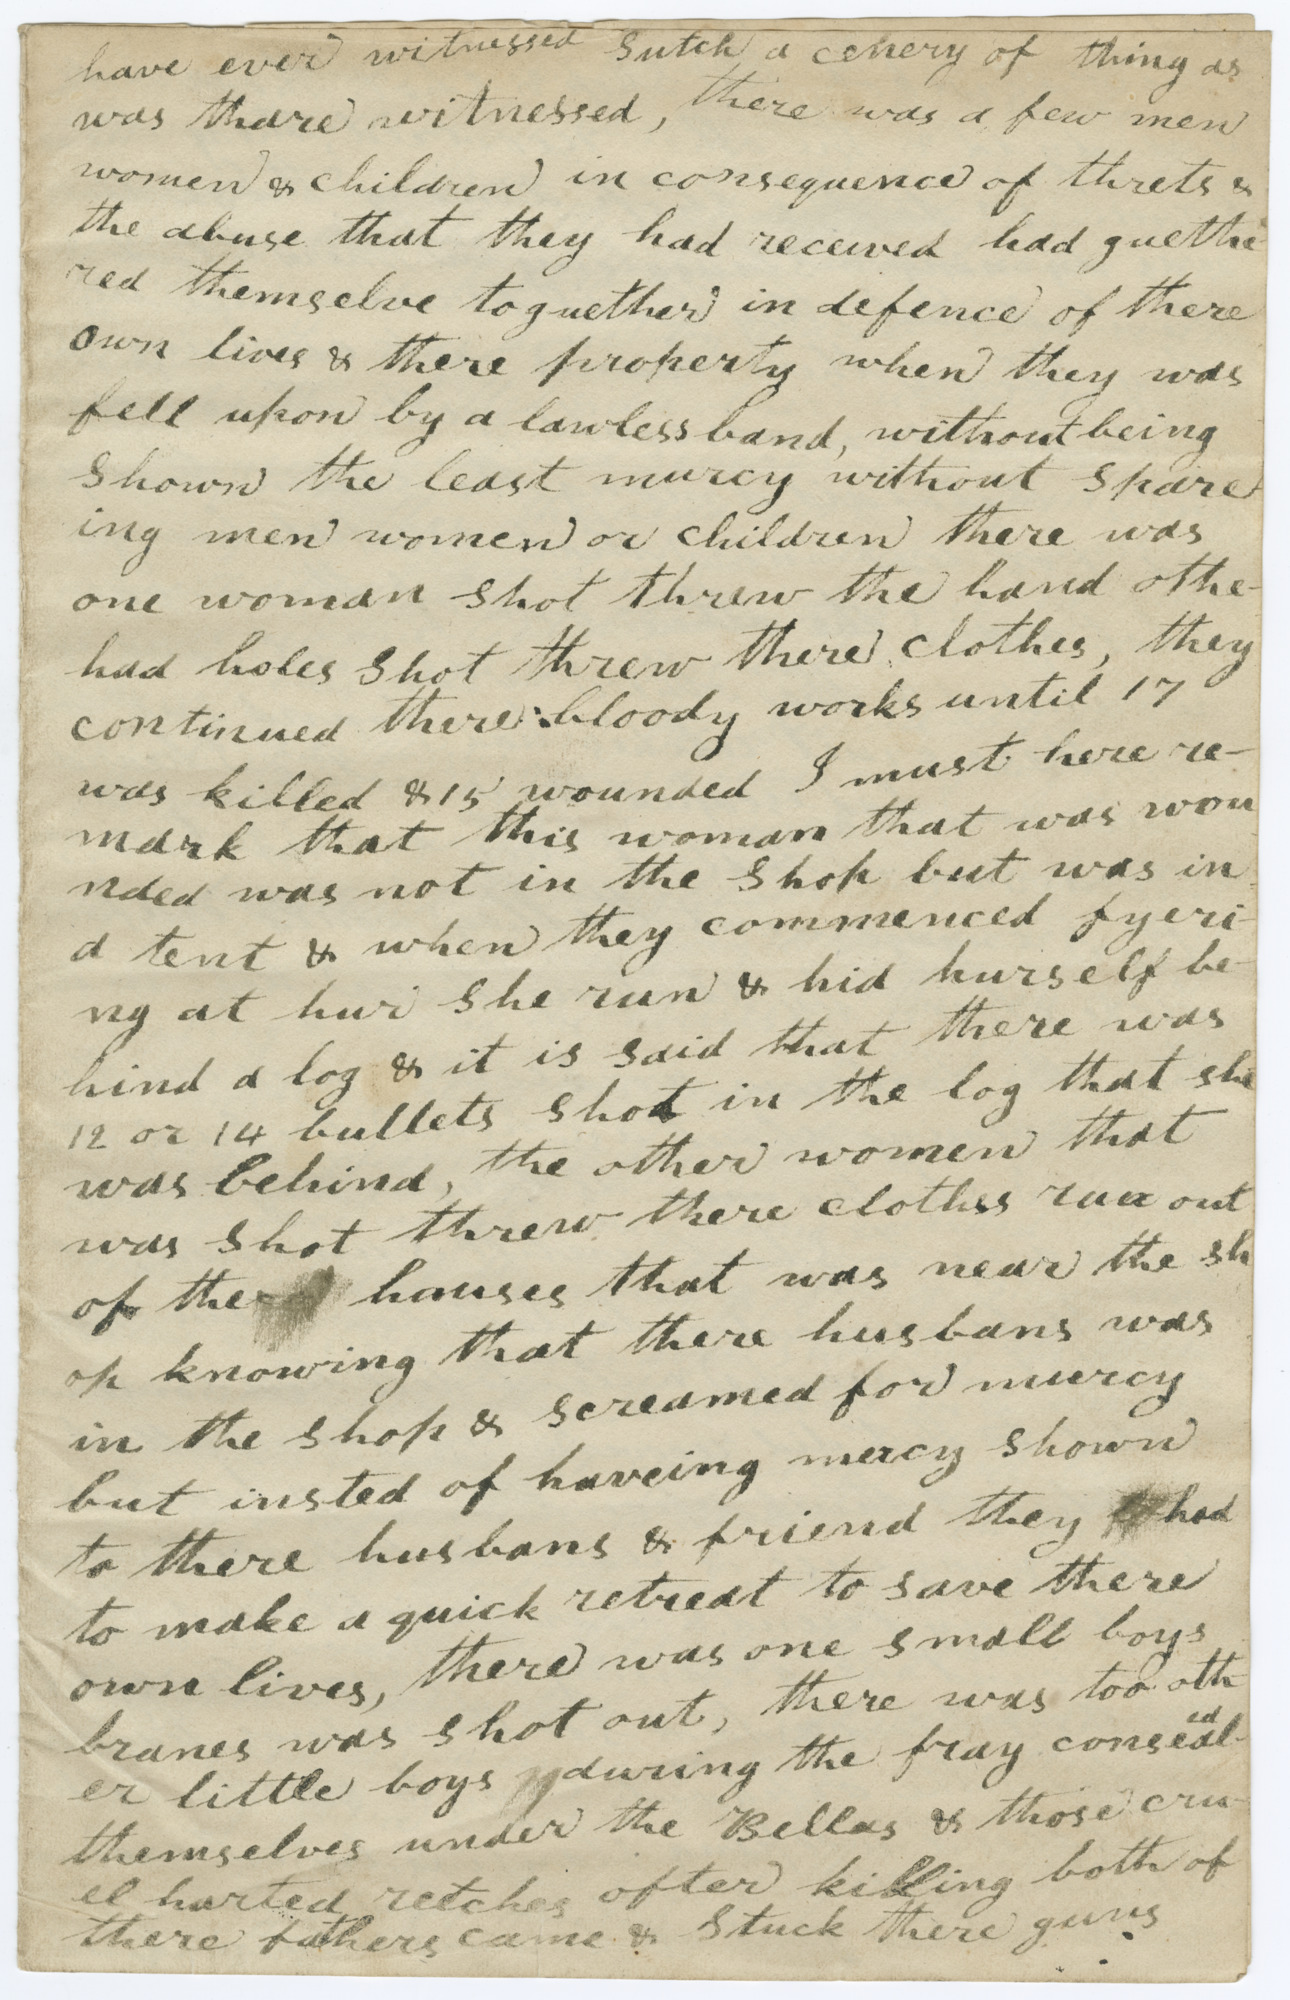 have ever witnessed Sutch a cenery of thing as
was thare witnessed, there was a few men
women & children in consequence of threts &
the abuse that they had received had guethe
red themselve toguether in defence of there
own lives & there property when they was
fell upon by a lawless band, without being
Shown the least murcy without Spare
ing men women or children there was
one woman Shot threw the hand othe-
had holes Shot threw there clothes, they
continued there bloody works until 17
was killed & 15 wounded I must here re-
mark that this woman that was wou
nded was not in the Shop but was in
a tent & when they commenced fyeri-
ng at hur She run & hid hurself be-
hind a log & it is said that there was
12 or 14 bullets Shot in the log that she
was behind, the other women that
was Shot threw there clothes run out
of the houses that was near the sh
op knowing that there husbans was
in the Shop & Screamed for murcy
but insted of haveing mercy Shown
to there husbans & friend they had
to make a quick retreat to save there
own lives, there was one small boys
branes was Shot out, there was too oth
er little boys during the fray consealed
themselves under the Bellas & those cru-
el harted retches after killing both of
there fathers came & Stuck there guns